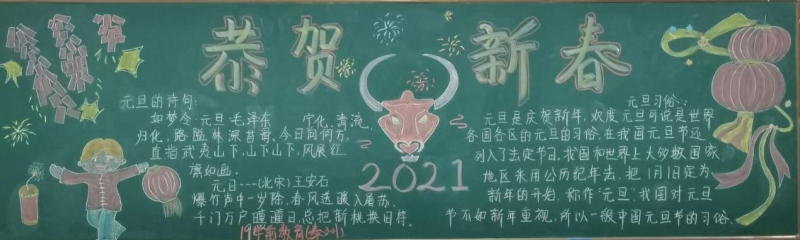 恭贺新春
2021
元旦的诗句:
如梦令·元旦 毛泽东 宁化、清流、
归化,路隘林深苔滑。今日向何方,
直指武夷山下。山下山下,风展红
旗如画。
元日---(北宋)王安石
爆竹声中一岁除,春风送暖入屠苏,
千门万户曈曈日,总把新桃换旧符。
19学前教育
元旦习俗:
元旦是庆贺新年,欢度元旦可说是世界
各国各区的元旦的习俗,在我国元旦节还
列入了法定节日,我国和世界上大多数国家
地区采用公历纪年法,把1月1日定为
新年的开始,称作“元旦”,我国对元旦
节不如新年重视,所以一般中国元旦节的习俗.